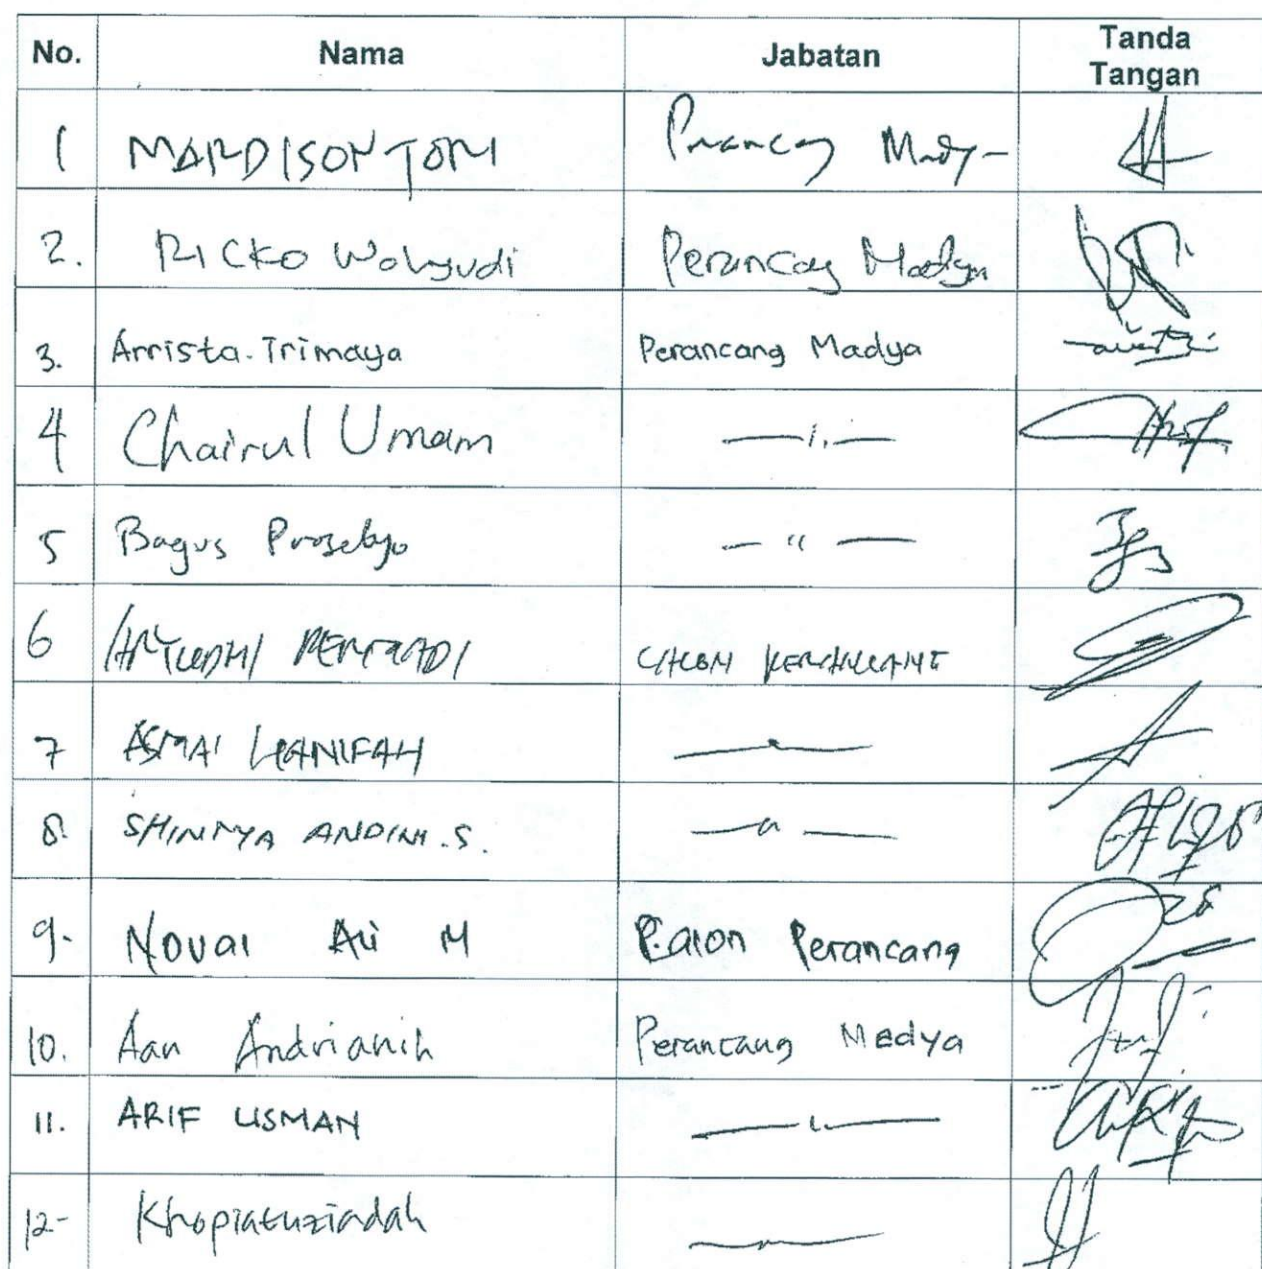 No. Nama Jabatan Tanda Tangan
1 MARDISON TORI Perancang Madya
2. RICKO Wahyudi Perancang Madya
3. Arrista Trimaya Perancang Madya
4 Chairul Umam —"—
5 Bagus Prasetyo —"—
6
7 ASMAI HANIFAH —"—
8. SHINTYA ANDINI .S. —"—
9. Noval Ali M Calon Perancang
10. Aan Andrianih Perancang Madya
11. ARIF USMAN —"—
12- Khopiatuziadah —"—